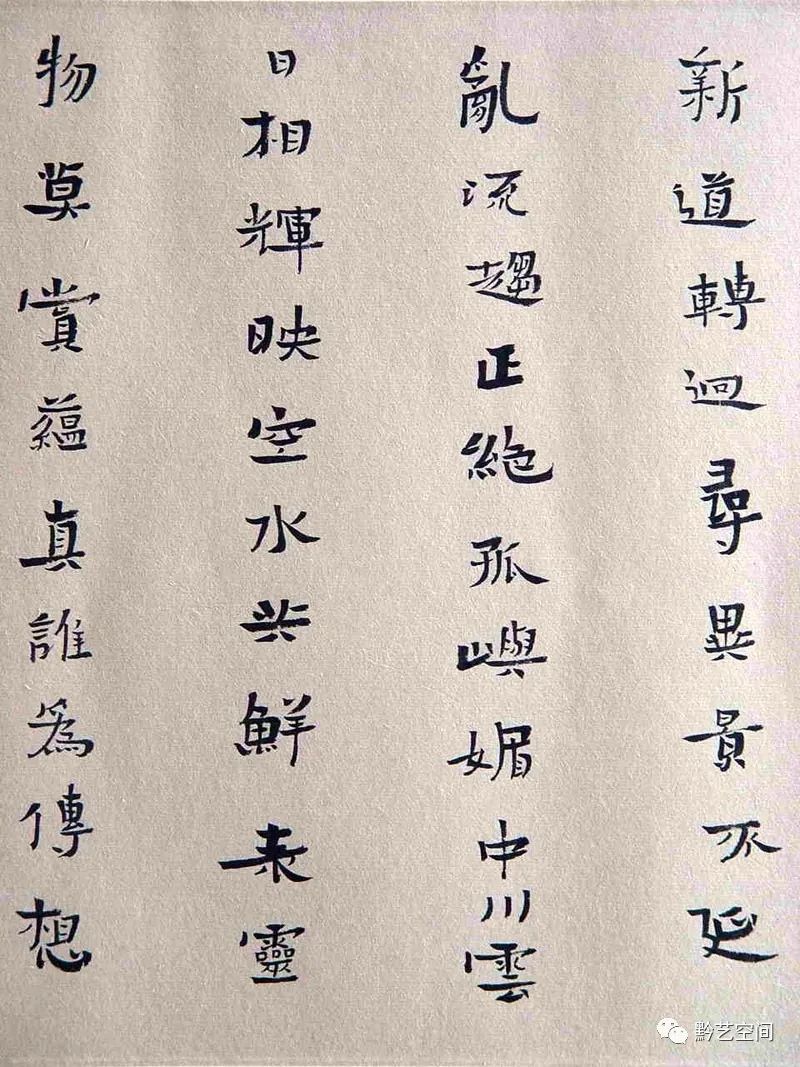 新道轉迥尋異景不延
亂流趨正絶孤嶼媚中川雲
日相輝映空水共鮮来靈
物莫賞蘊真誰為傳想
黔艺空间